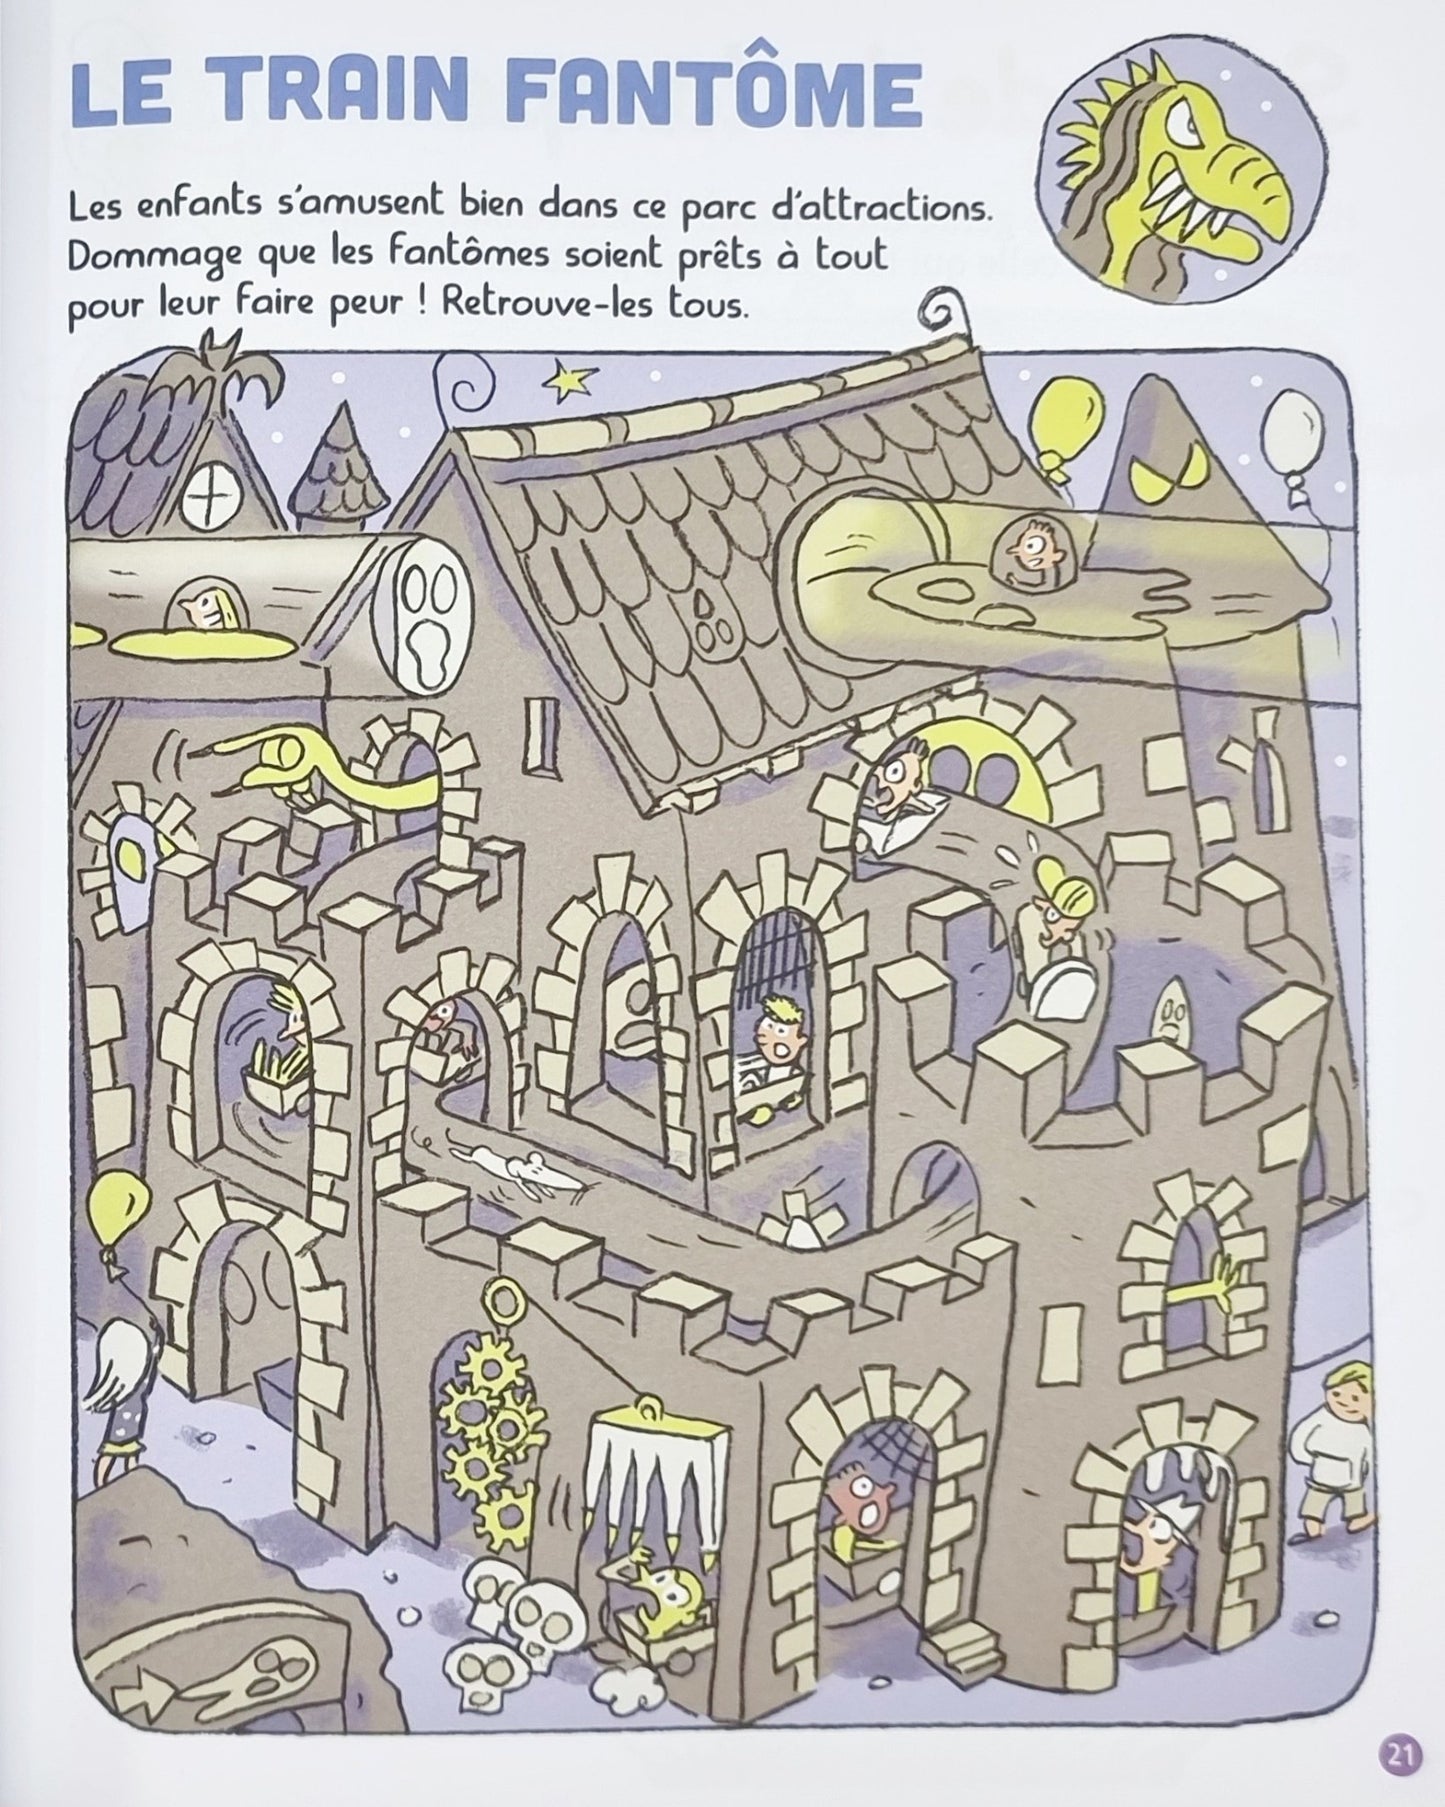 LE TRAIN FANTÔME
Les enfants s'amusent bien dans ce parc d'attractions.
Dommage que les fantômes soient prêts à tout
pour leur faire peur ! Retrouve-les tous.
21